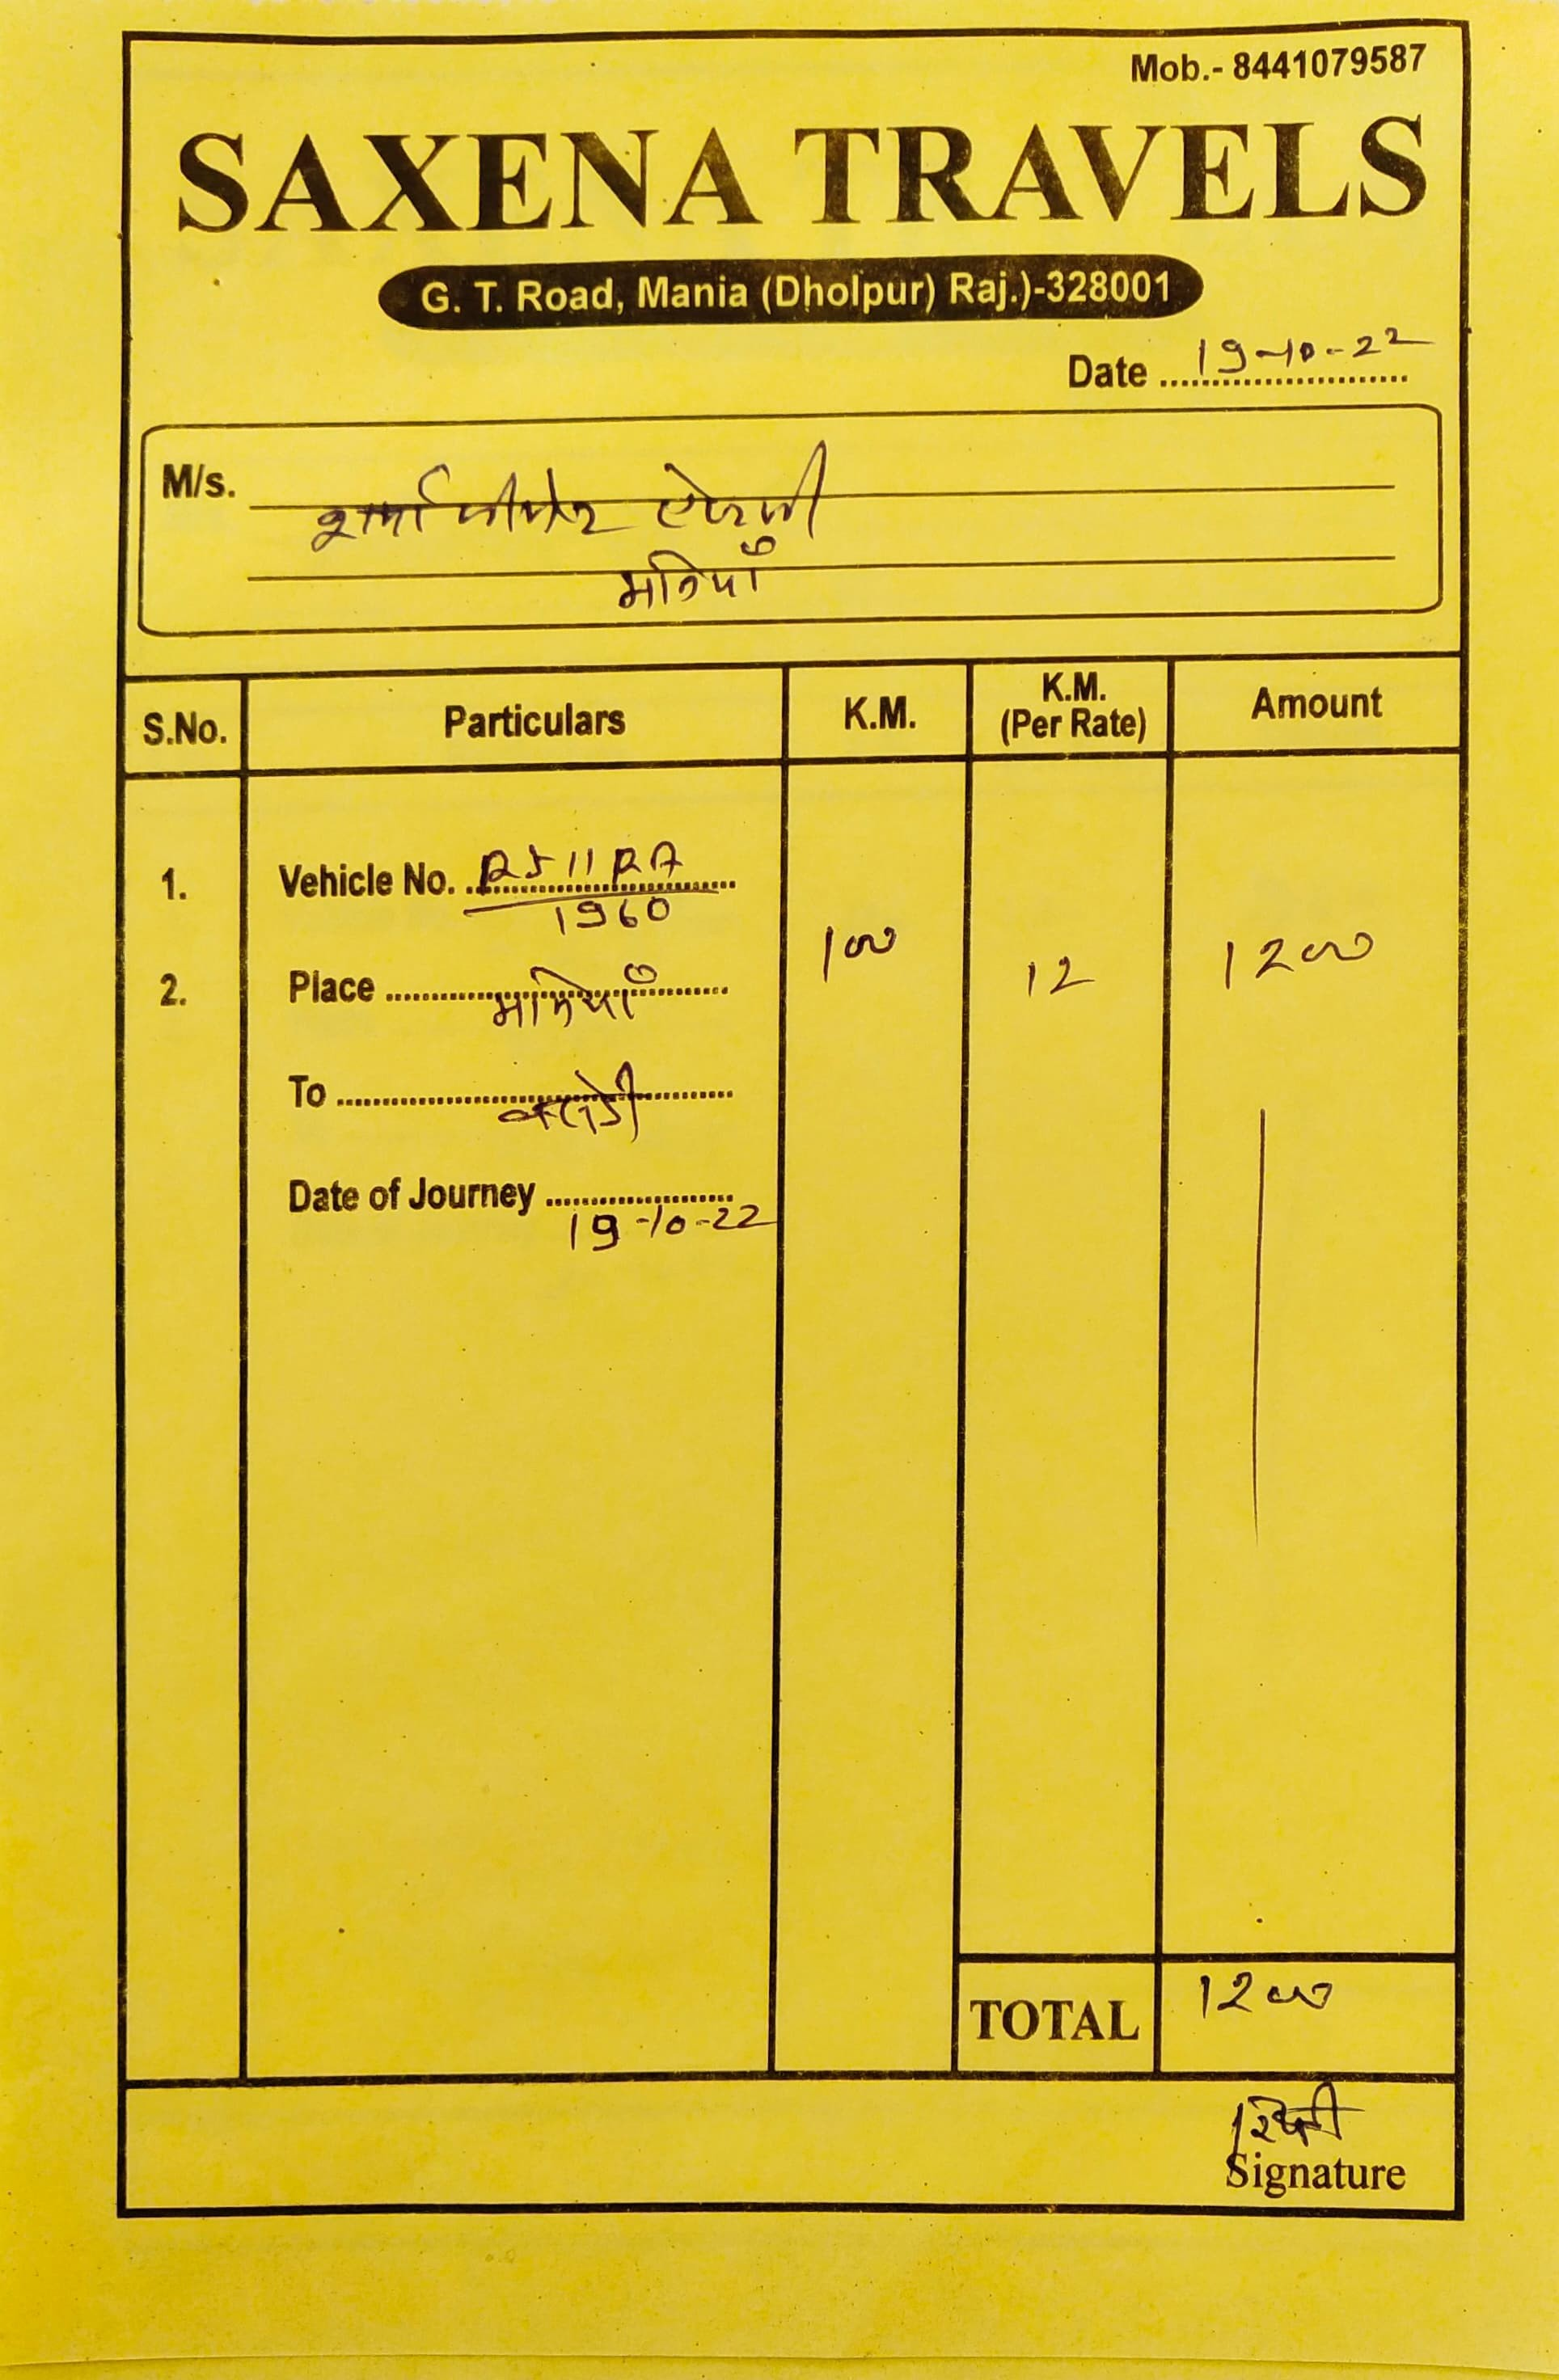 Mob.- 8441079587
SAXENA TRAVELS
G. T. Road, Mania (Dholpur) Raj.)-328001
Date 19-10-22
M/s. शर्मा
मनियाँ
S.No. Particulars K.M. K.M. (Per Rate) Amount
1. Vehicle No. RJ11RA
1960
2. Place मनियाँ 100 12 1200
To
Date of Journey 19-10-22
TOTAL 1200
Signature